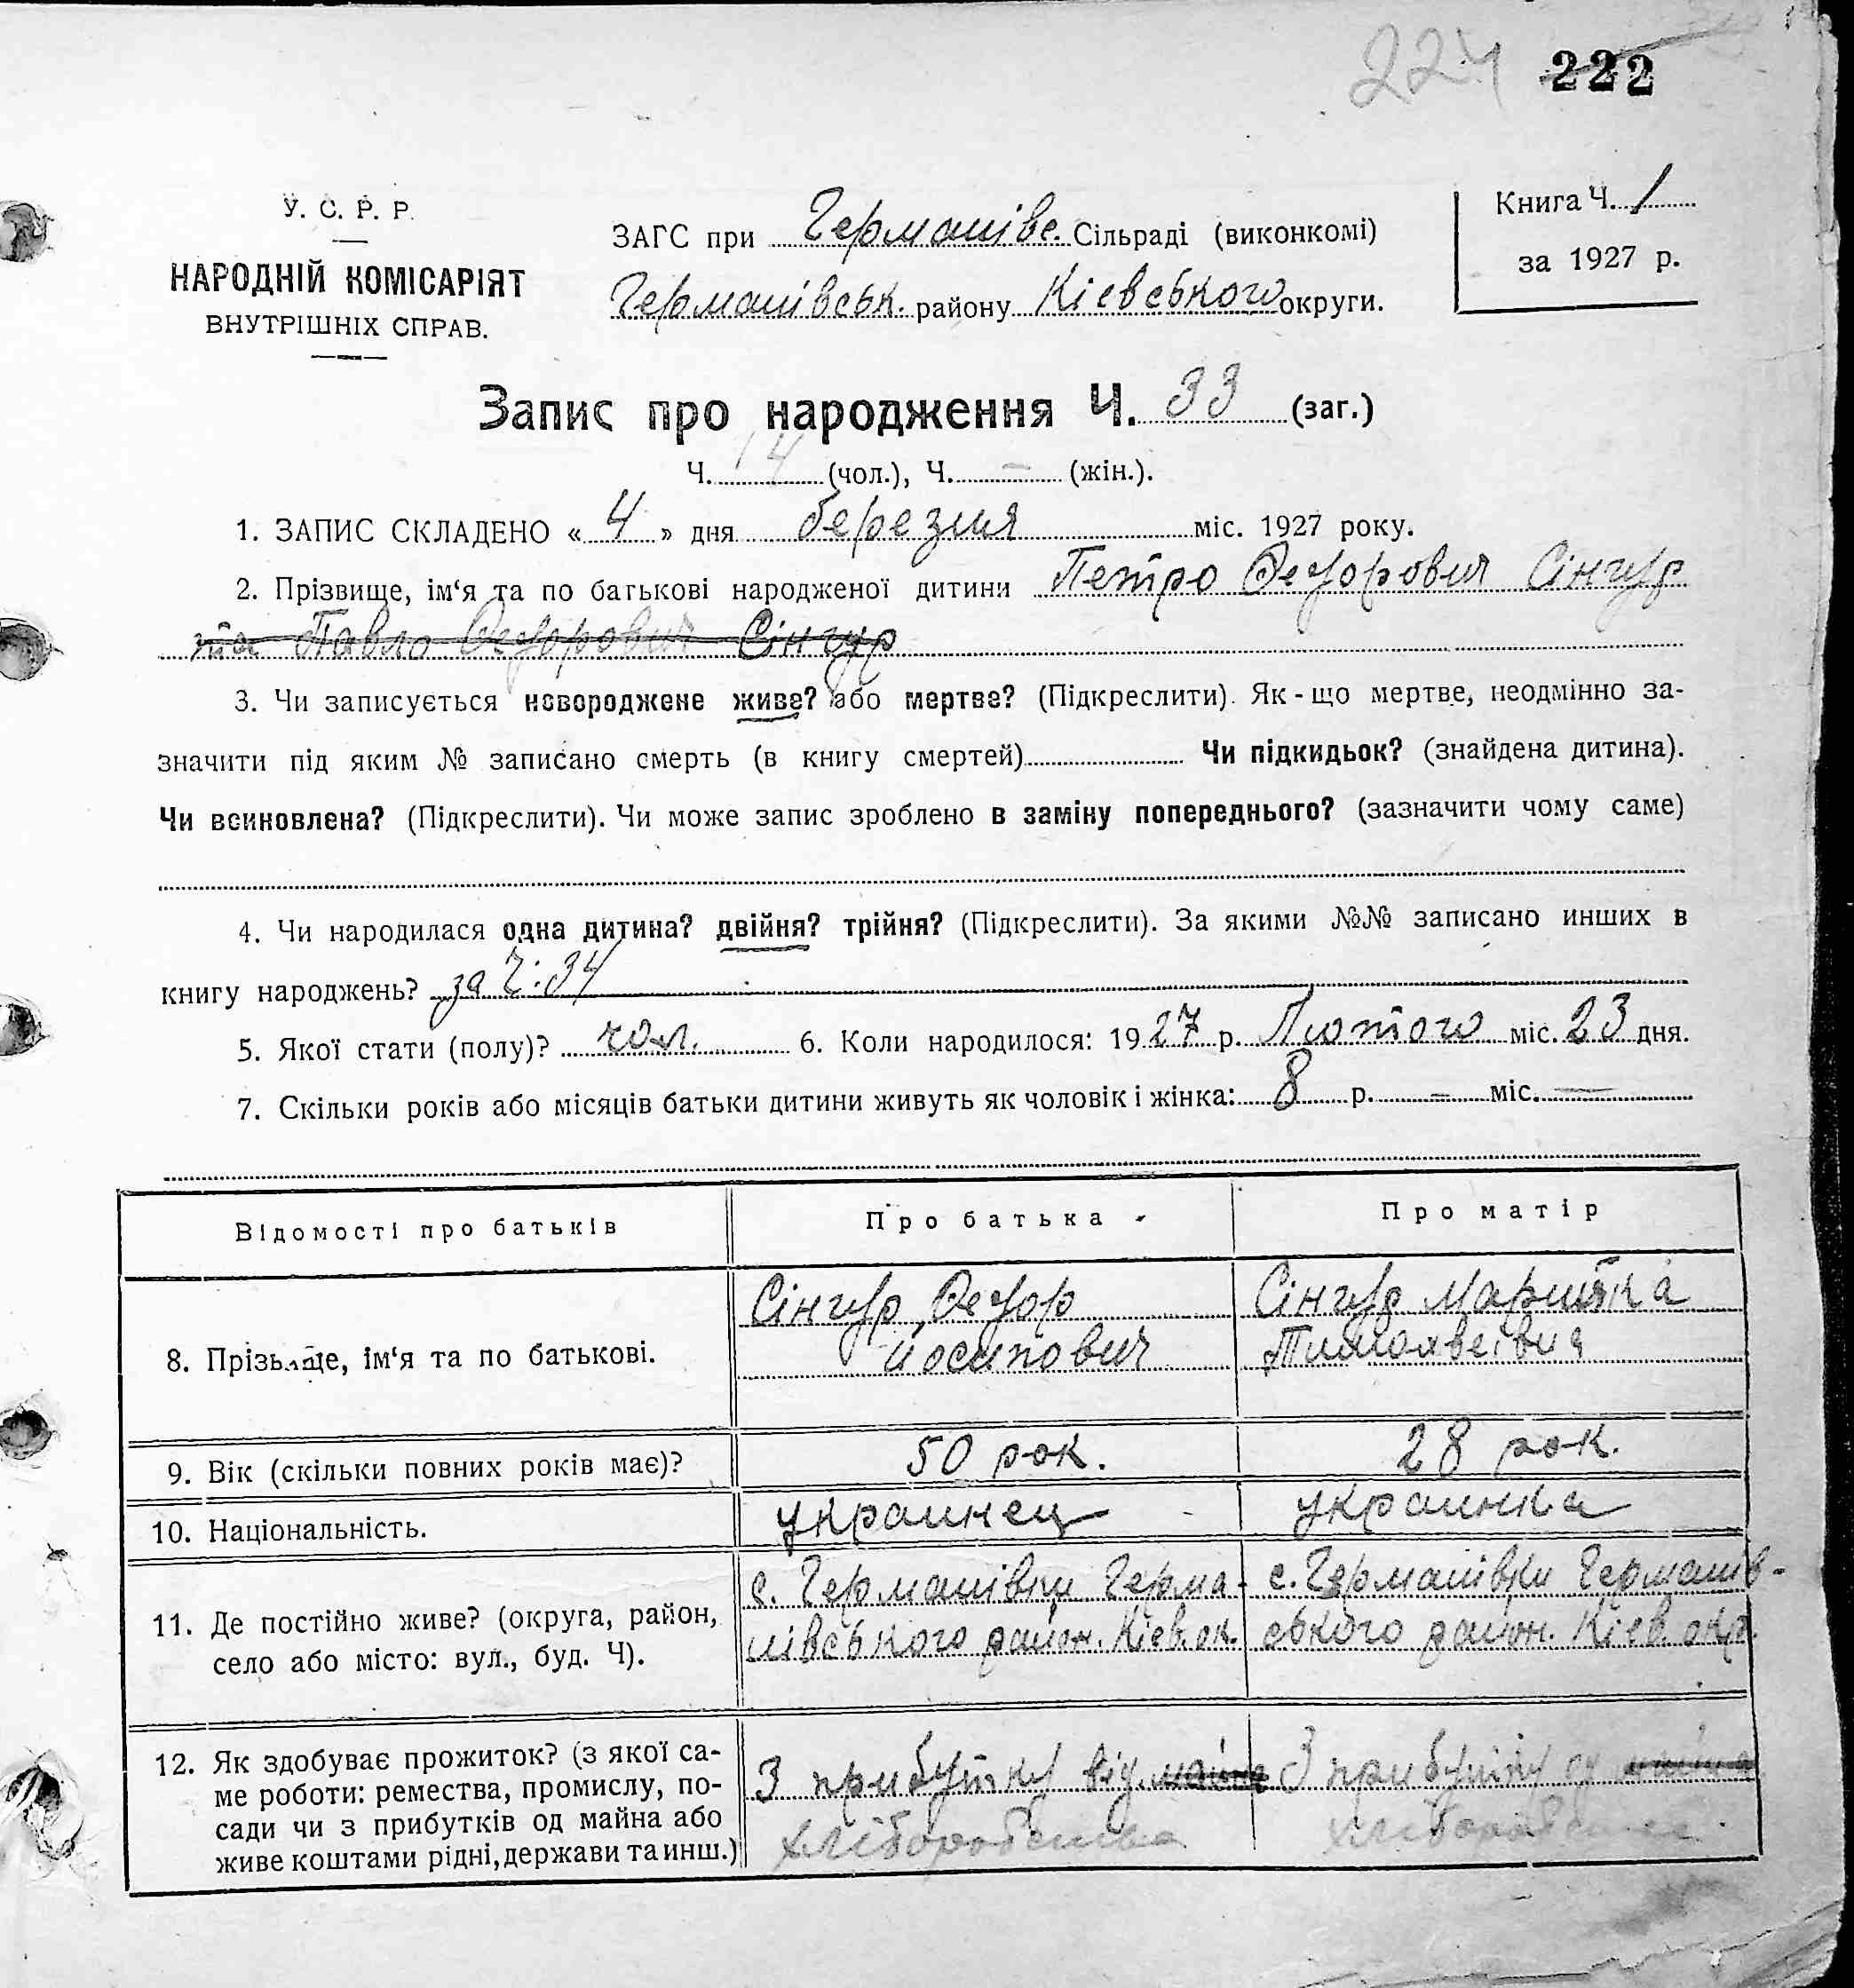 224 222
У. С. Р. Р.
НАРОДНІЙ КОМІСАРІЯТ
ВНУТРІШНІХ СПРАВ.
ЗАГС при Германівс. Сільраді (виконкомі)
Германівськ. району Кіевського округи.
Книга Ч. 1
за 1927 р.
Запис про народження Ч. 33 (заг.)
Ч. 14 (чол.), Ч. — (жін.).
1. ЗАПИС СКЛАДЕНО « 4 » дня березня міс. 1927 року.
2. Прізвище, ім‘я та по батькові народженої дитини Петро Федорович Сінгур
та Павло Федорович Сінгур
3. Чи записується новороджене живе? або мертве? (Підкреслити). Як-що мертве, неодмінно за-
значити під яким № записано смерть (в книгу смертей) Чи підкидьок? (знайдена дитина).
Чи всиновлена? (Підкреслити). Чи може запис зроблено в заміну попереднього? (зазначити чому саме)
4. Чи народилася одна дитина? двійня? трійня? (Підкреслити). За якими №№ записано инших в
книгу народжень? за Ч: 34
5. Якої стати (полу)? чол. 6. Коли народилося: 1927 р. Лютого міс. 23 дня.
7. Скільки років або місяців батьки дитини живуть як чоловік і жінка: 8 р. — міс. —
Відомості про батьків Про батька Про матір
8. Прізвище, ім‘я та по батькові.
Сінгур Федор
Йосипович
Сінгур
9. Вік (скільки повних років має)? 50 рок. 28 рок.
10. Національність. украинец украинка
11. Де постійно живе? (округа, район,
село або місто: вул., буд. Ч).
с. Германівки Герма-
нівського район. Кіев. ок.
с. Германівки Германів-
ського район. Кіев. окр.
12. Як здобуває прожиток? (з якої са-
ме роботи: ремества, промислу, по-
сади чи з прибутків од майна або
живе коштами рідні, держави та инш.)
З прибутку від. майна
хліборобства
З прибутку од майна
хліборобства